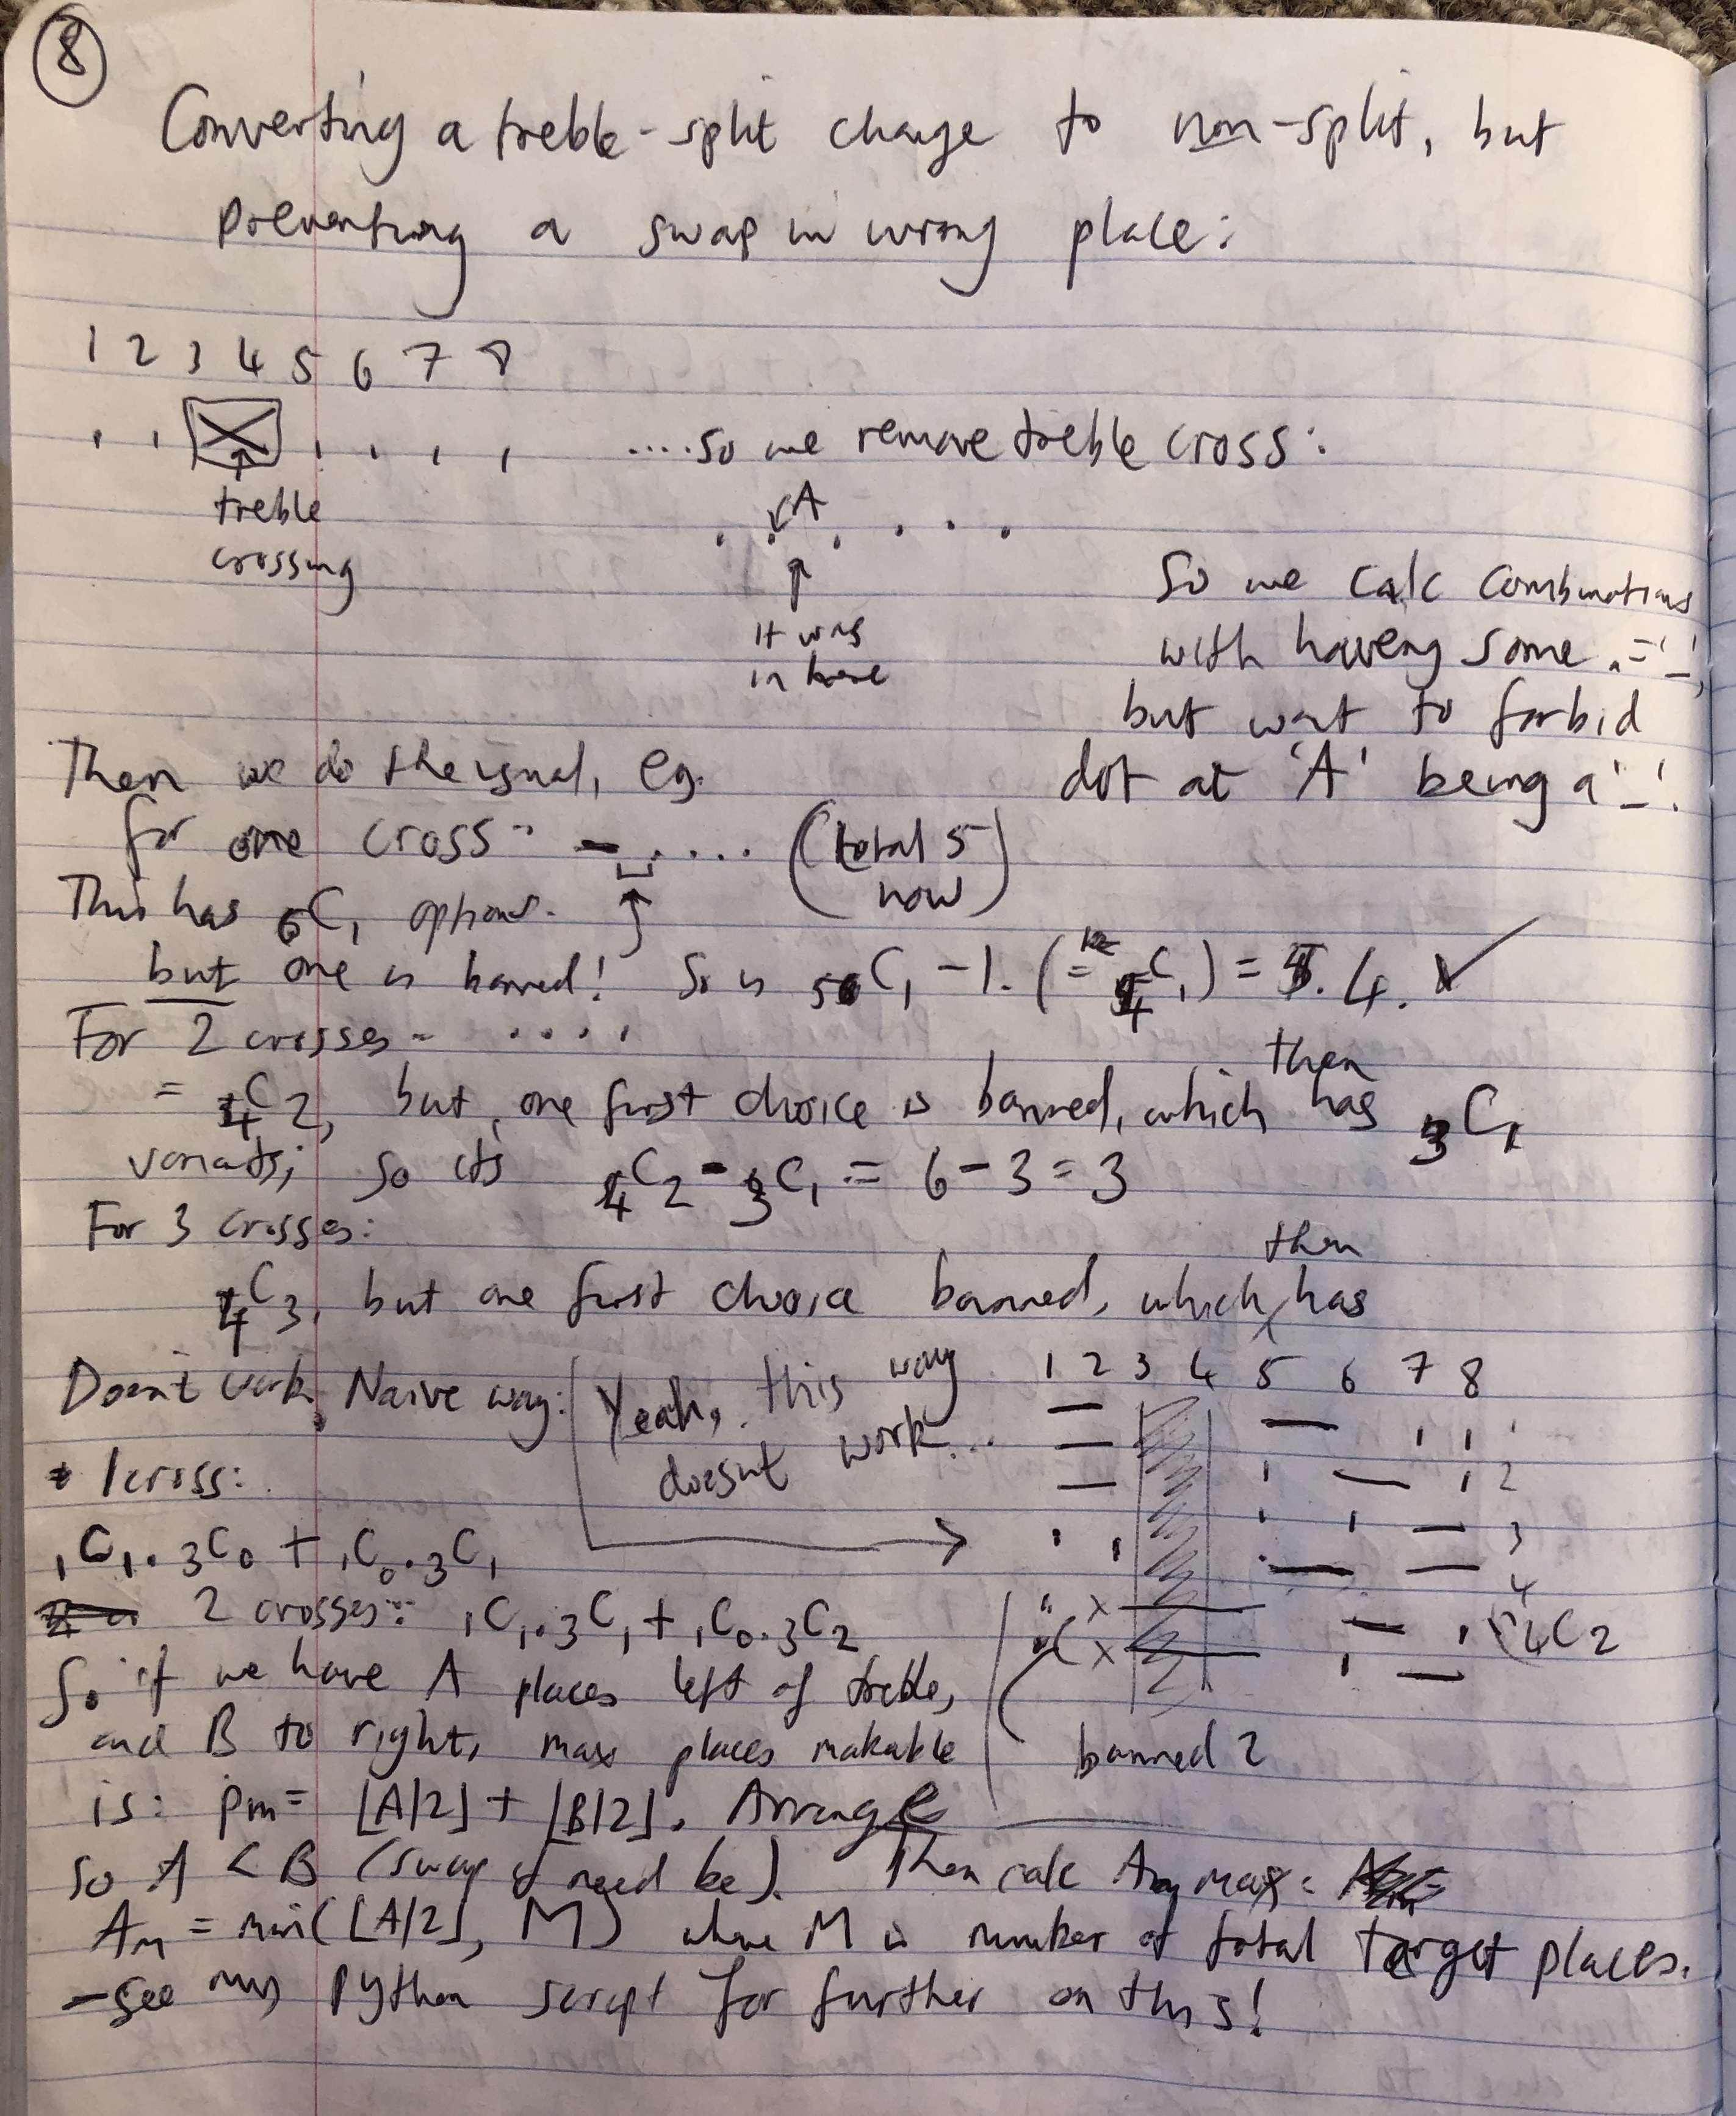 8
Converting a treble-split change to non-split, but
preventing a swap in wrong place:
1 2 3 4 5 6 7 8
....so we remove treble cross:
treble
crossing
A
it was
in here
So we calc combinations
with having some . = '_',
but want to forbid
dot at 'A' being a '_'.
Then we do the usual, eg.
for one cross: (total 5
now)
This has 6C1 options.
but one is barred! So is 5C1 - 1. (= 4C1) = 4. ✓
For 2 crosses - . . . .
= 4C2, but one first choice is banned, which then has 3C1
variants; so its 4C2 - 3C1 = 6 - 3 = 3
For 3 crosses:
4C3, but one first choice banned, which then has
Doesn't work. Naive way:
Yeah, this way
doesnt work...
1 2 3 4 5 6 7 8
1
2
3
4
1 cross:
1C1 . 3C0 + 1C0 . 3C1
2 crosses: 1C1 . 3C1 + 1C0 . 3C2
4C2
banned 2
So if we have A places left of treble,
and B to right, max places makable
is: pm = ⌊A/2⌋ + ⌊B/2⌋. Arrange
so A < B (swap if need be). Then calc max:
Am = min(⌊A/2⌋, M) where M is number of total target places.
- see my python script for further on this!